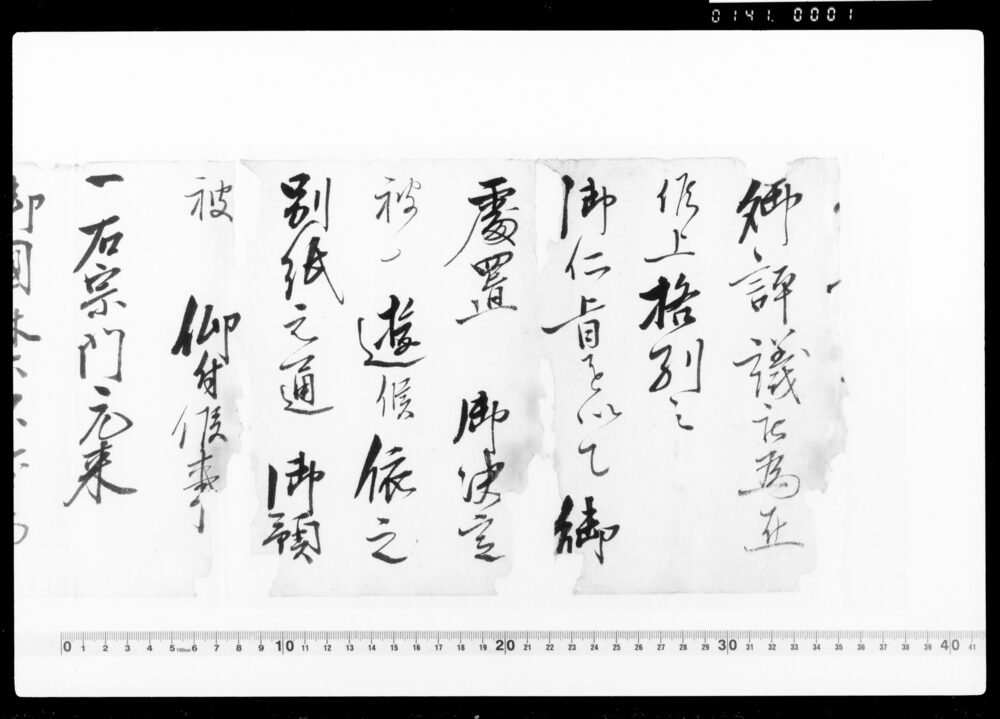 0141. 0001
御評議被為在
候上格別之
御仁旨を以て御
處置 御決定
被 遊候依之
別紙之通 御預
被 仰付候事
一右宗門元来
御国禁
0 1 2 3 4 5 150cm 6 7 8 9 10 11 12 13 14 15 16 17 18 19 20 21 22 23 24 25 26 27 28 29 30 31 32 33 34 35 36 37 38 39 40 41